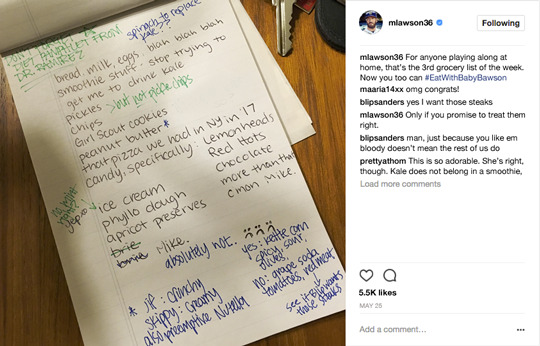 spinach to replace
kale??
PAMPHLET FROM
DR RAMIREZ
bread, milk, eggs, blah blah blah
smoothie stuff, stop trying to
get me to drink kale
pickles
chips > but not pickle chips
Girl Scout cookies
peanut butter*
that pizza we had in NY in '17
candy, specifically: Lemonheads
Red Hots
chocolate
more than that
c'mon Mike.
yep
ice cream
phyllo dough
apricot preserves
brie
brie
Mike.
absolutely not.
yes: kettle corn
spicy, sour,
olives,
no: grape soda
tomatoes, red meat
see if Blip wants
those steaks
* JP: crunchy
slappy: creamy
also preemptive Nutella
mlawson36
Following
mlawson36 For anyone playing along at
home, that's the 3rd grocery list of the week.
Now you too can #EatWithBabyBawson
maaria14xx omg congrats!
blipsanders yes I want those steaks
mlawson36 Only if you promise to treat them
right.
blipsanders man, just because you like em
bloody doesn't mean the rest of us do
prettyathom This is so adorable. She's right,
though. Kale does not belong in a smoothie,
Load more comments
5.5K likes
MAY 25
Add a comment…